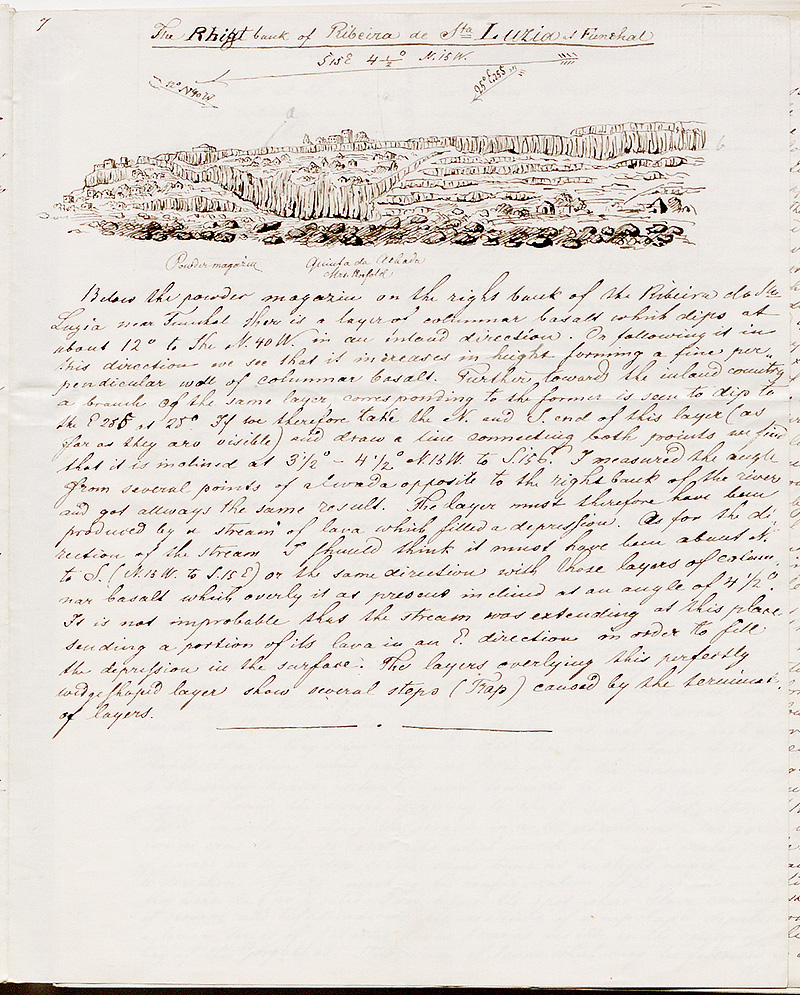 7
The Rhigt bank of Ribeira de Sta Luzia at Funchal
S 15 E 4 1/2° N. 15 W.
12° N 40 W
25° E 25 S
a
b
Powder magazin
Quinta da Achada
Mrs.
Below the powder magazin on the right bank of the Ribeira da Sta
Luzia near Funchal ther is a layer of columnar basalt which dips at
about 12° to the N. 40 W. in an inland direction. On following it in
this direction we see that it increases in height forming a fine per-
pendicular wall of columnar basalt. Further towards the inland country
a branch of the same layer corresponding to the former is seen to dip to
the E 25 S at 25° If we therefore take the N. and S. end of this layer (as
far as they are visible) and draw a line connecting both points we find
that it is inclined at 3 1/2° - 4 1/2° N. 15 W. to S. 15 E. I measured the angle
from several points of a levada opposite to the right bank of the river
and got allways the same result. The layer must therefore have been
produced by a stream of lava which filled a depression. As for the di-
rection of the stream I should think it must have been about N.
to S. (N. 15 W. to S. 15 E) or the same direction with those layers of colum-
nar basalt which overly it at present inclined at an angle of 4 1/2°.
It is not improbable that the stream was extending at this place
sending a portion of its lava in an E. direction in order to fill
the depression in the surface. The layers overlying this perfectly
wedge shaped layer show several steps (Trap) caused by the terminat.
of layers.